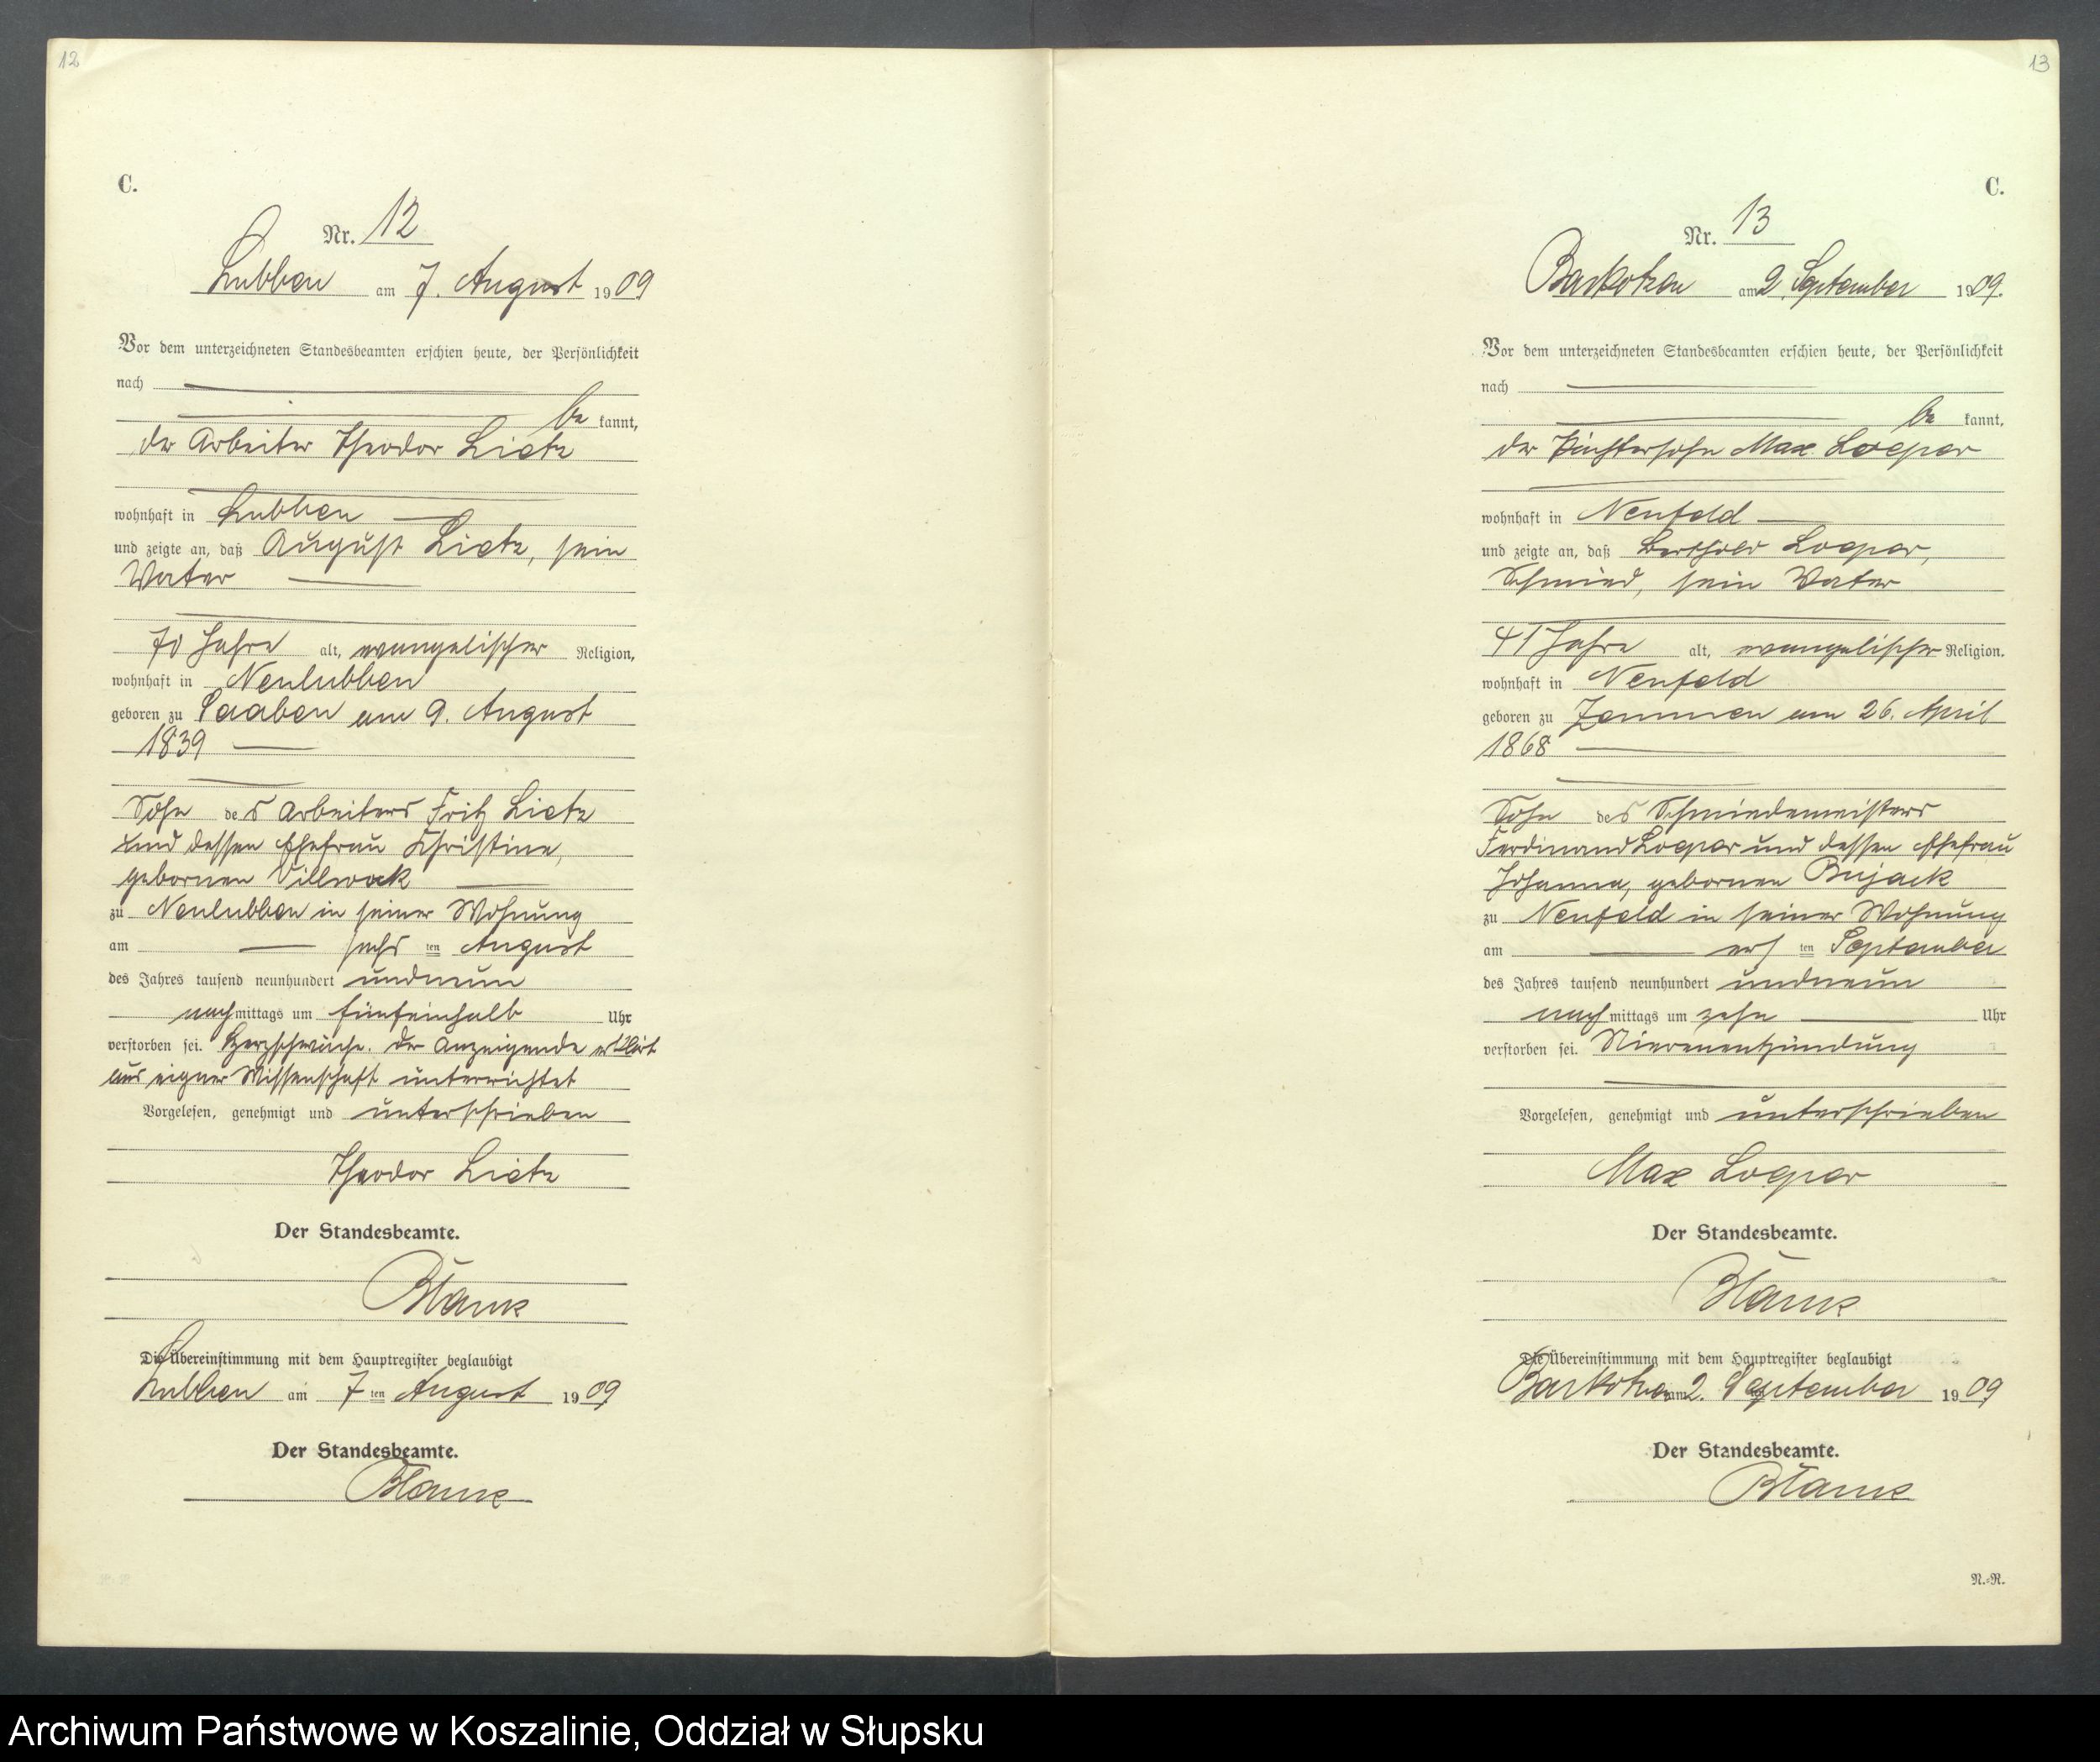 12
C.
Nr. 12
Lubben am 7. August 1909
Vor dem unterzeichneten Standesbeamten erschien heute, der Persönlichkeit
nach
be kannt,
der Arbeiter Theodor Lietz
wohnhaft in Lubben
und zeigte an, daß August Lietz, sein
Vater
70 Jahre alt, evangelischer Religion,
wohnhaft in Neulubben
geboren zu Saaben am 9. August
1839
Sohn des Arbeiters Fritz Lietz
und dessen Ehefrau Christine,
gebornen Villwock
zu Neulubben in seiner Wohnung
am sechs ten August
des Jahres tausend neunhundert undneun
nachmittags um fünfeinhalb Uhr
verstorben sei. Herzschwäche. Der Anzeigende erklärt
aus eigner Wissenschaft unterrichtet
Vorgelesen, genehmigt und unterschrieben
Theodor Lietz
Der Standesbeamte.
Blank
Die Übereinstimmung mit dem Hauptregister beglaubigt
Lubben am 7 ten August 1909
Der Standesbeamte.
Blank
13
C.
Nr. 13
Barkotzen am 2. September 1909.
Vor dem unterzeichneten Standesbeamten erschien heute, der Persönlichkeit
nach
be kannt,
der Max Loeper
wohnhaft in Neufeld
und zeigte an, daß Berthold Loeper,
Schmied, sein Vater
41 Jahre alt, evangelischer Religion.
wohnhaft in Neufeld
geboren zu Zemmen am 26. April
1868
Sohn des Schmiedemeisters
Ferdinand Loeper und dessen Ehefrau
Johanna, gebornen Bujack
zu Neufeld in seiner Wohnung
am ers ten September
des Jahres tausend neunhundert undneun
nachmittags um zehn Uhr
verstorben sei. Nierenentzündung
Vorgelesen, genehmigt und unterschrieben
Max Loeper
Der Standesbeamte.
Blank
Die Übereinstimmung mit dem Hauptregister beglaubigt
Barkotzen am 2. September 1909
Der Standesbeamte.
Blank
N.-R.
Archiwum Państwowe w Koszalinie, Oddział w Słupsku